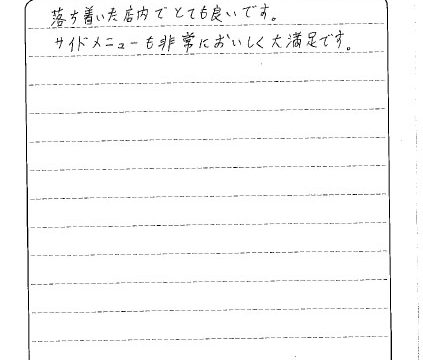 落ち着いた店内でとても良いです。
サイドメニューも非常においしく大満足です。